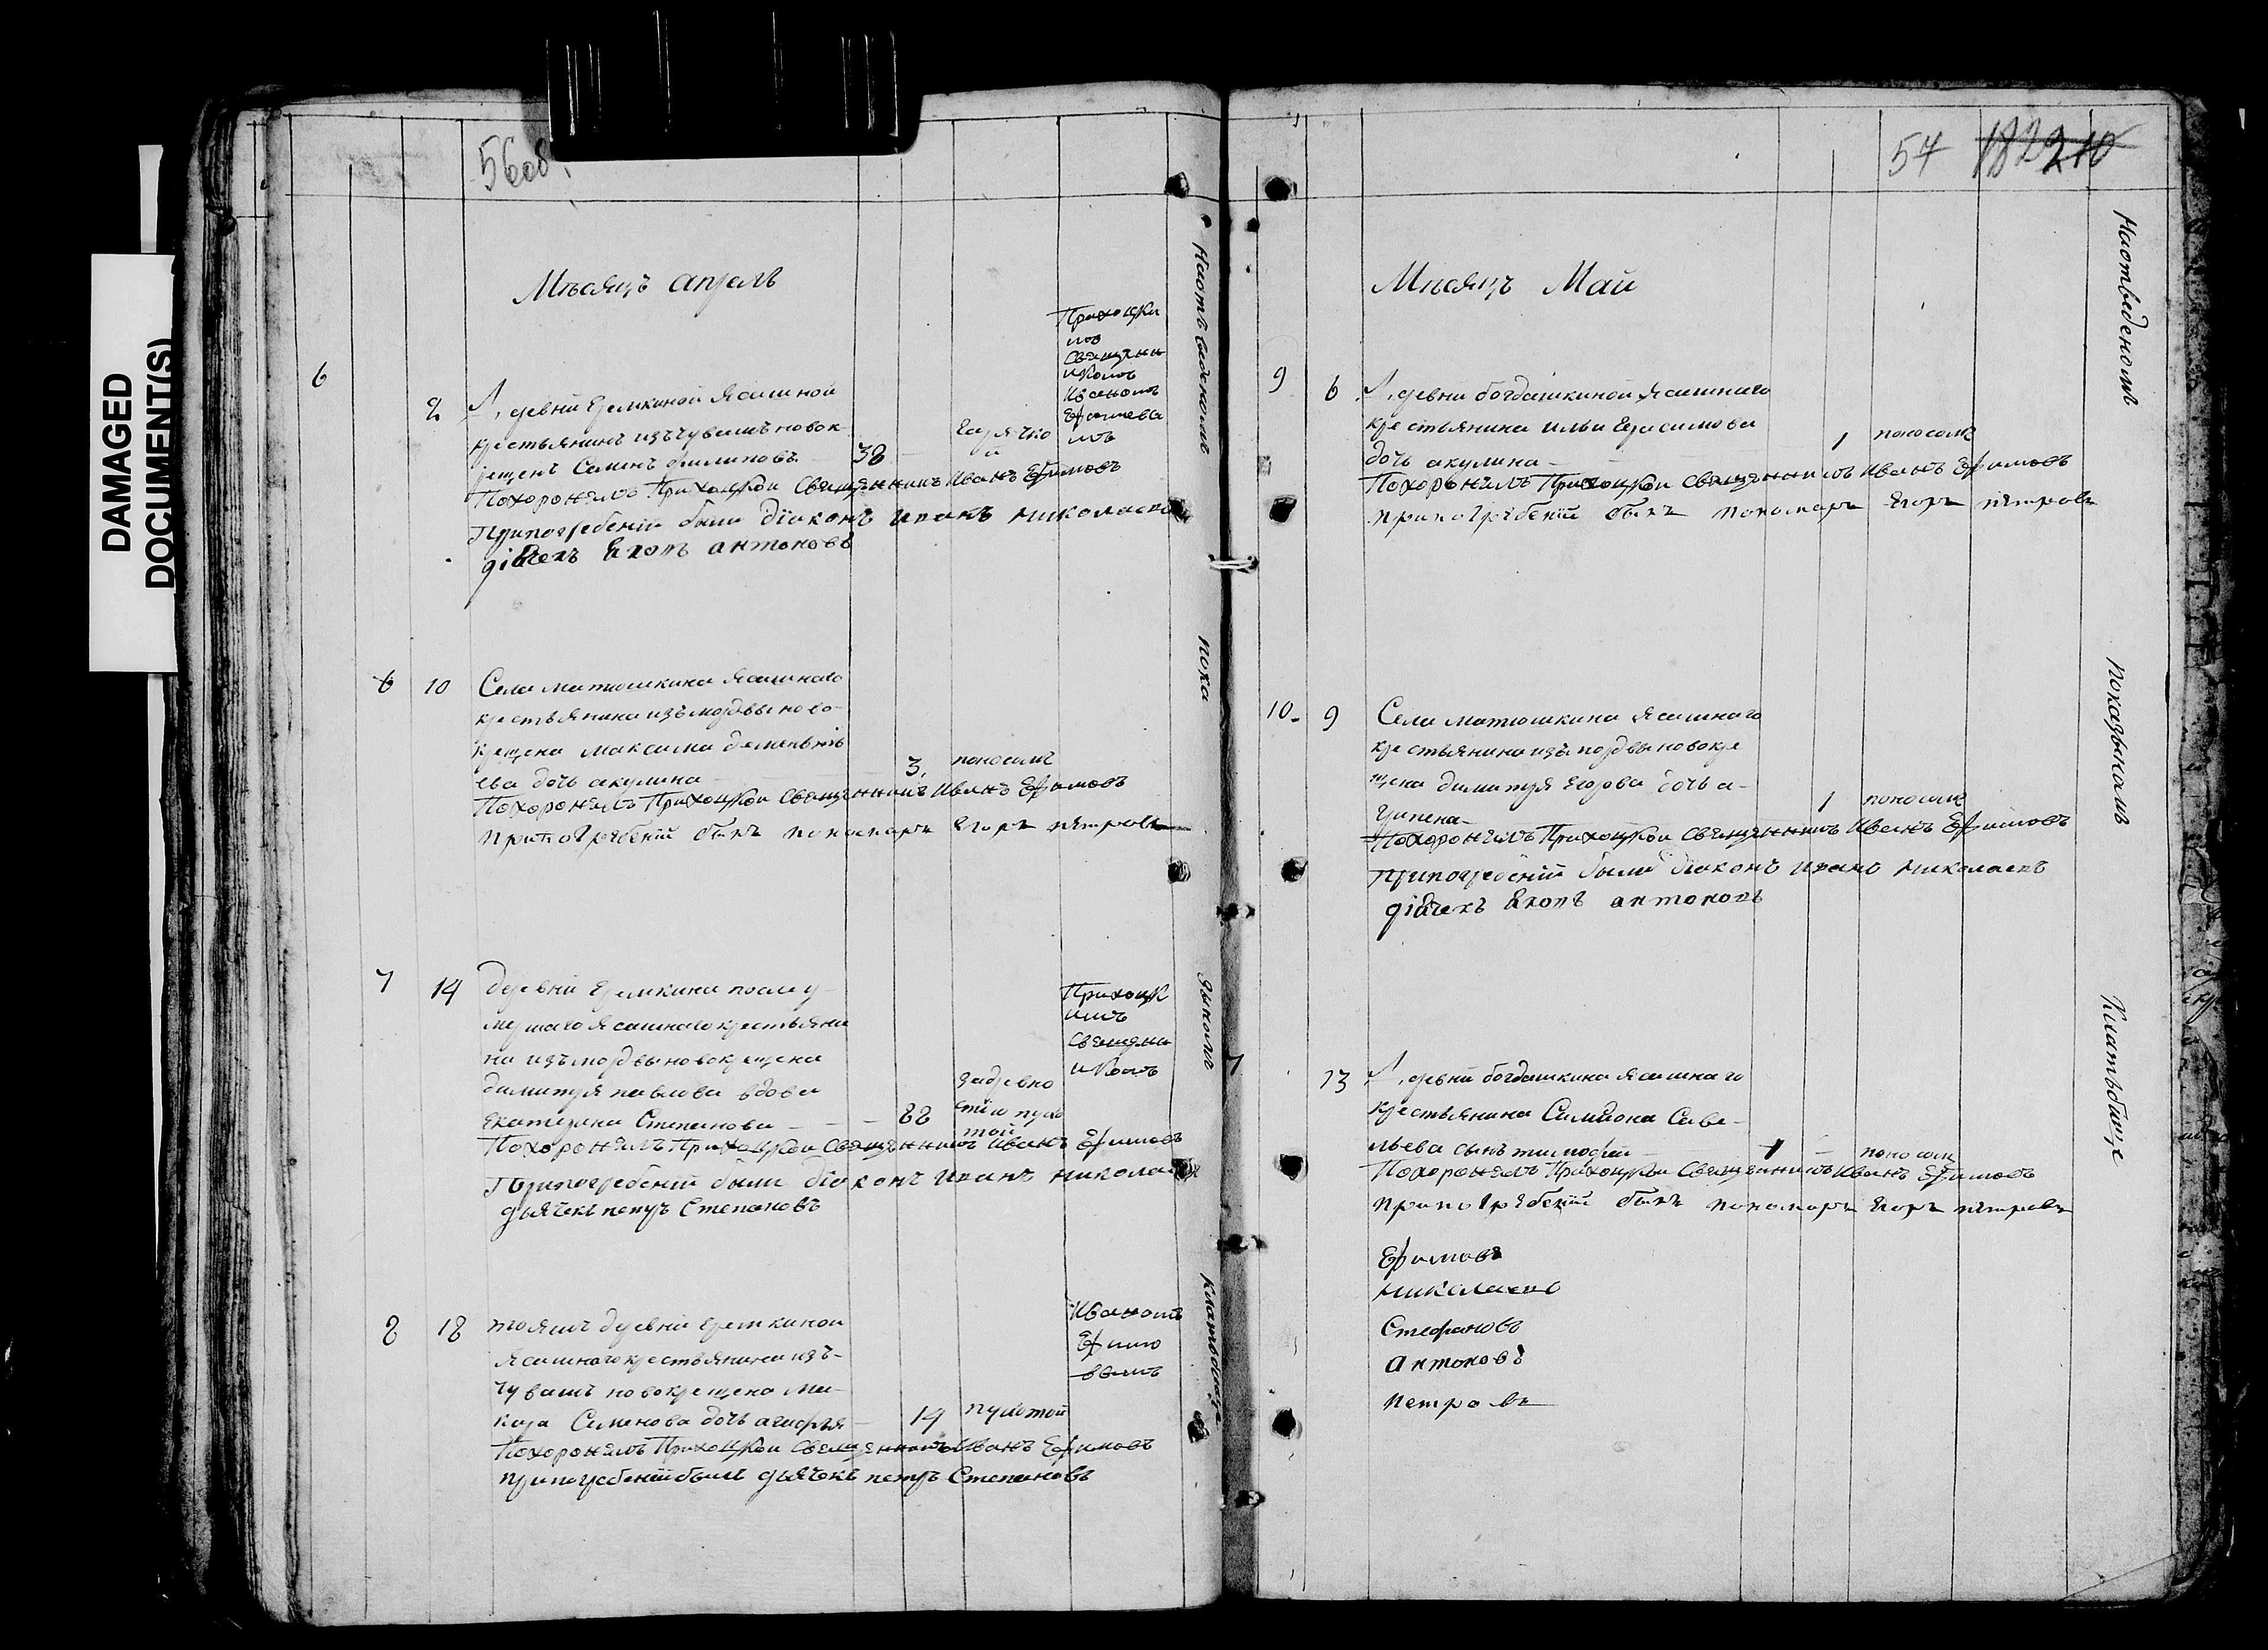 DAMAGED
DOCUMENT(S)
56 об.
Мѣсяцъ апрель
6
2
деревни Еремкиной Ясашной
крестьянинъ изъ чувашъ новок-
рещенъ Семенъ Филиповъ
38
горячко
й
Приходски
мъ
Священн
икомъ
Иваномъ
Ефимовы
мъ
Похоронялъ Приходкои Священникъ Иванъ Ефимовъ
Припогребенiи были дiаконъ Иванъ Николаевъ
дiячекъ антоновъ
6 10 Села матюшкина Ясашнаго
крестьянина изъ мордвы ново-
крещена Максима дементь
ева дочь акулина
3.
поносомъ
Похоронялъ Приходкои Священникъ Иванъ Ефимовъ
припогребенiи былъ пономарь Егоръ петровъ
7 14 деревни Еремкина после у-
мершаго Ясашнаго крестьяни
на изъ мордвы новокрещена
димитрiя павлова вдова
Екатерина Степанова
88
Приходск
имъ
Священн
икомъ
Похоронялъ Приходкои Священникъ Иванъ Ефимовъ
Припогребенiи были дiаконъ Иванъ Николаевъ
дьячекъ петръ Степановъ
8 18 тоямъ деревни Еремкинои
Ясашнаго крестьянина изъ-
чувашъ новокрещена Ма-
кара Семенова дочь агафья
14
Иваномъ
Ефимо
вымъ
Похоронялъ Приходкои Священникъ Иванъ Ефимовъ
припогребенiи былъ дьячекъ петръ Степановъ
Наотведеномъ
пока
зыкомъ
кладбище
57
Мѣсяцъ Май
9 6 деревни богдашкиной Ясашнаго
крестьянина ильи Герасимова
дочь акулина
1
поносомъ
Похоронялъ Приходкои Священникъ Иванъ Ефимовъ
припогребенiи былъ пономарь Егоръ петровъ
10. 9 Села матюшкина Ясашнаго
крестьянина изъ мордвы новокре
щена димитрiя Егорова дочь а-
грипена
1
поносомъ
Похоронялъ Приходкои Священникъ Иванъ Ефимовъ
Припогребенiи были дiаконъ Иванъ Николаевъ
дiячекъ антоновъ
7
13 деревни богдашкина Ясашнаго
крестьянина Симиона Саве-
льева сынъ тимофей
1
поносом
Похоронялъ Приходкои Священникъ Иванъ Ефимовъ
припогребенiи былъ пономарь Егоръ петровъ
Ефимовъ
Николаевъ
Стефановъ
Антоновъ
Петровъ
Наотведеномъ
показыкомъ
Клатьбище